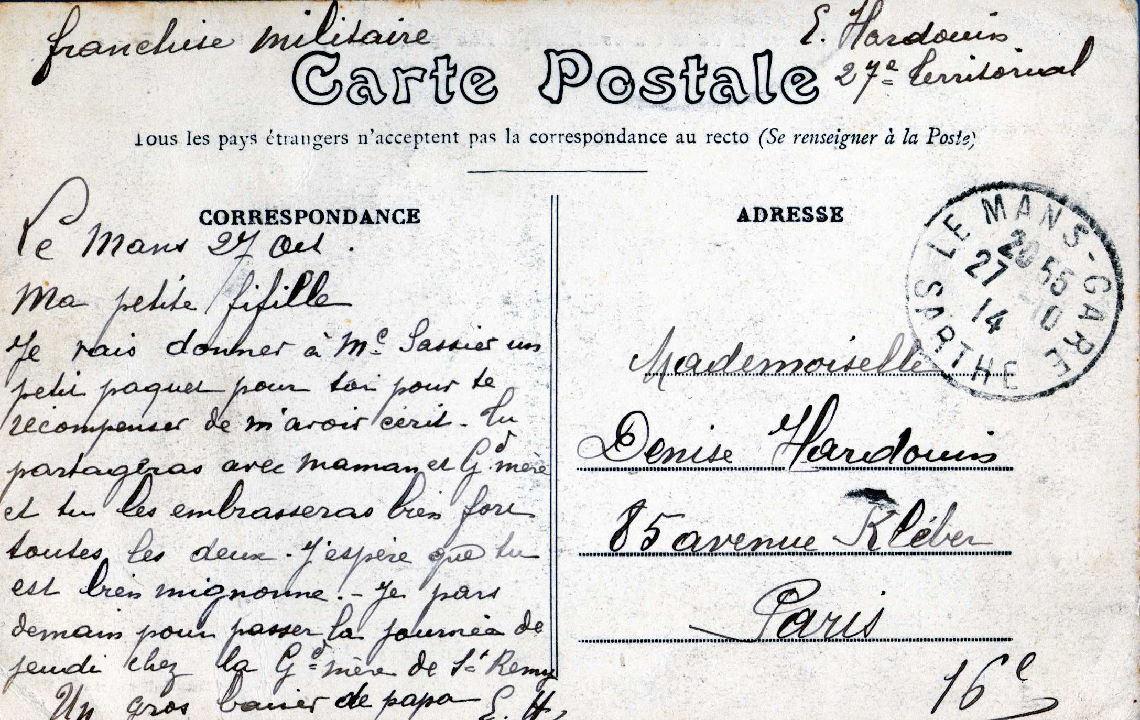 franchise militaire
E. Hardouin
27e territorial
Carte Postale
Tous les pays étrangers n'acceptent pas la correspondance au recto (Se renseigner à la Poste)
CORRESPONDANCE
Le Mans 27 Oct.
Ma petite fifille
Je vais donner à Me Sassier un
petit paquet pour toi pour te
récompenser de m'avoir écrit - Tu
partageras avec maman et Gd mère
et tu les embrasseras bien fort
toutes les deux. J'espère que tu
est bien mignonne. - Je pars
demain pour passer la journée de
jeudi chez la Gde mère de St Remy
Un gros baiser de papa E. H.
ADRESSE
LE MANS-GARE
20 55
27 -10
14
SARTHE
Mademoiselle
Denise Hardouin
85 avenue Kléber
Paris
16e